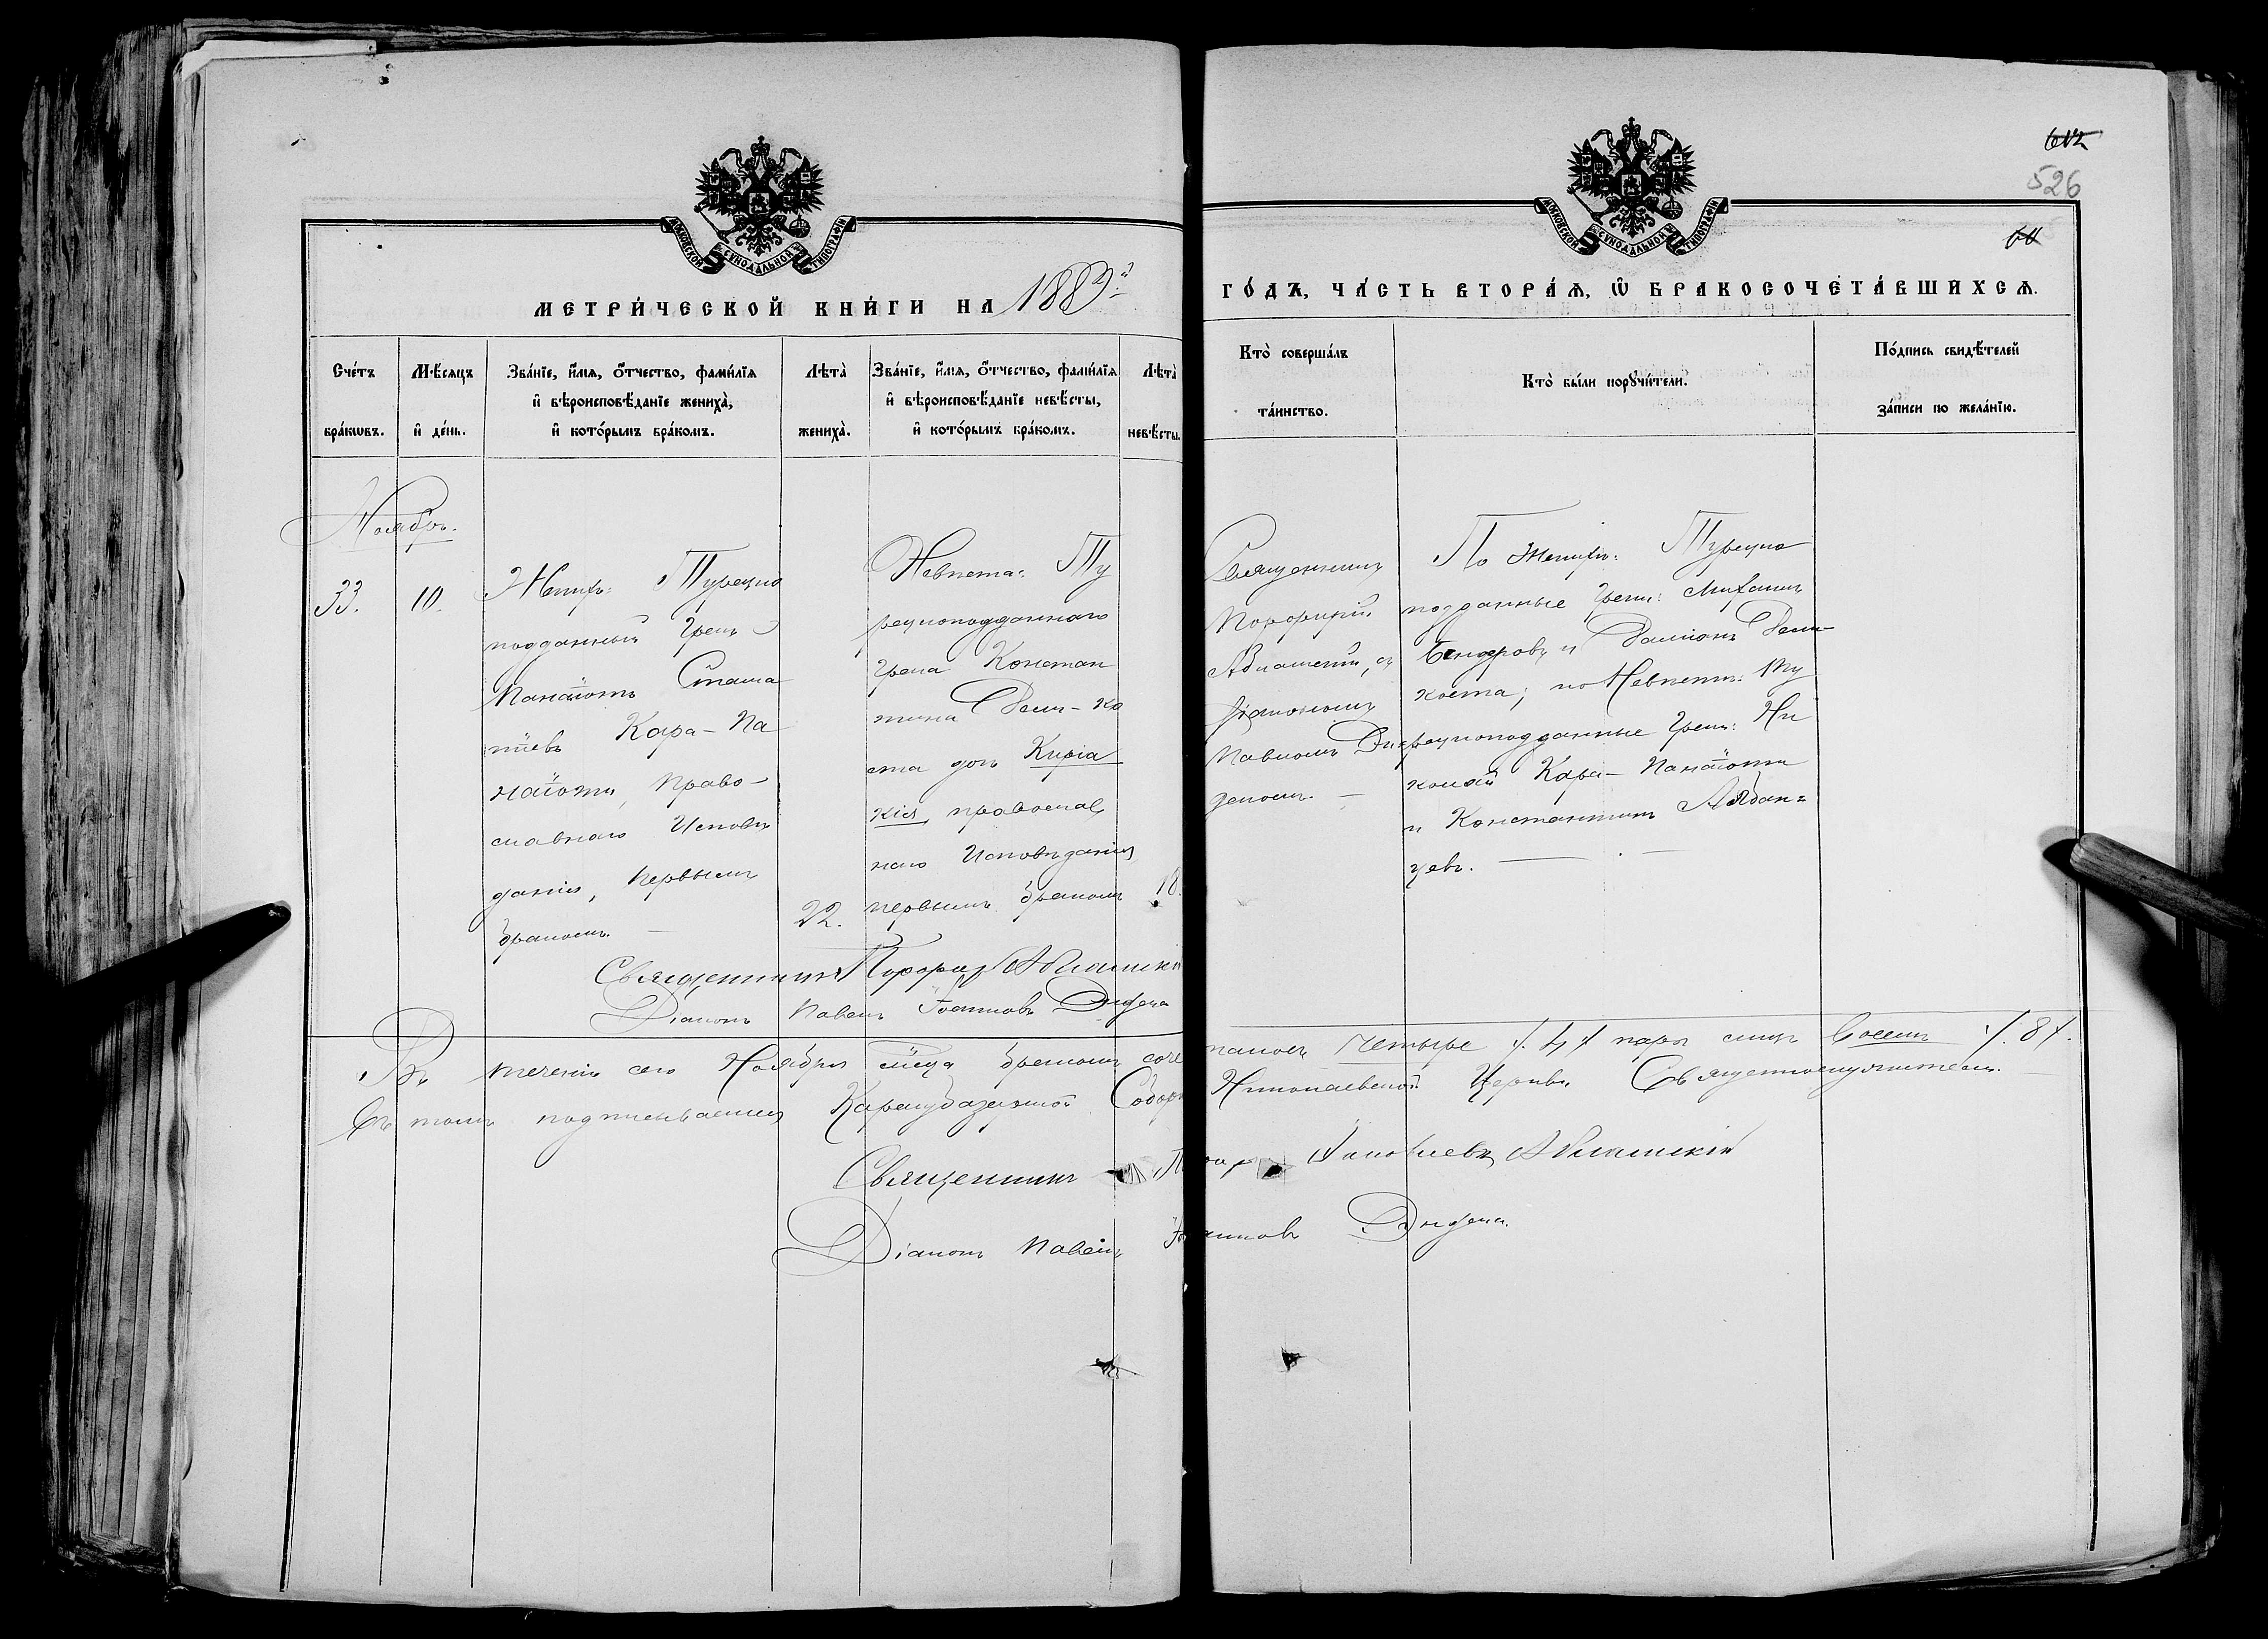 612
526
МОСКОВСКОЙ СѴНОДАЛЬНОЙ ТИПОГРАФІИ
МОСКОВСКОЙ СѴНОДАЛЬНОЙ ТИПОГРАФІИ
МЕТРИ́ЧЕСКОЙ КНИ́ГИ НА 1883й
ГО́ДЪ, ЧА́СТЬ ВТОРА́Ѧ, Ѡ҆ БРАКОСОЧЕТА́ВШИХСѦ.
Сче́тъ
бра́кѡвъ.
Мѣ́сяцъ
и҆ де́нь.
Зва́нїе, и҆́мѧ, ѻ҆́тчество, фами́лїѧ
и҆ вѣроисповѣ́данїе жениха̀,
и҆ кото́рымъ бра́комъ.
Лѣта̀
жениха̀.
Зва́нїе, и҆́мѧ, ѻ҆́тчество, фами́лїѧ
и҆ вѣроисповѣ́данїе невѣ́сты,
и҆ кото́рымъ бра́комъ.
Лѣта̀
невѣ́сты.
Кто̀ соверша́лъ
та́инство.
Кто̀ бы́ли порꙋчи́тели.
По́дпись свидѣ́телей
за́писи по жела́нїю.
Ноябрь.
33.
10.
Женихъ: Турецко
подданный Грекъ
Панаіотъ Стама
тіевъ Кара-Па
наіоти, Право-
славнаго Исповѣ
данія, первымъ
бракомъ. —
22.
Невѣста: Ту
рецкоподданнаго
Грека Констан
тина Дели-Ко
ста дочь Киріа
кія, православ
наго Исповѣданія
первымъ бракомъ
18.
Священникъ
Порфирій
Абламскій, съ
Діакономъ
Павломъ
По Женихѣ: Турецко
подданные Греки: Михаилъ
Бендеровъ и Даміанъ Дели-
коста; по Невѣстѣ: Ту
рецкоподданные Греки: Ни
колай Кара-Панаіоти
и Константинъ
Священникъ Порфир Абламскій
Діаконъ Павелъ Іоанновъ
Въ теченіи сего Ноября мѣсяца бракомъ соче
талось Четыре /.4./ пары лицъ Восемь /.8./.
Въ томъ подписываемся Карасубазарской Соборн
Николаевской Церкви Священнослужители. —
Священникъ Яковлевъ Абламскій
Діаконъ Павелъ Іоанновъ